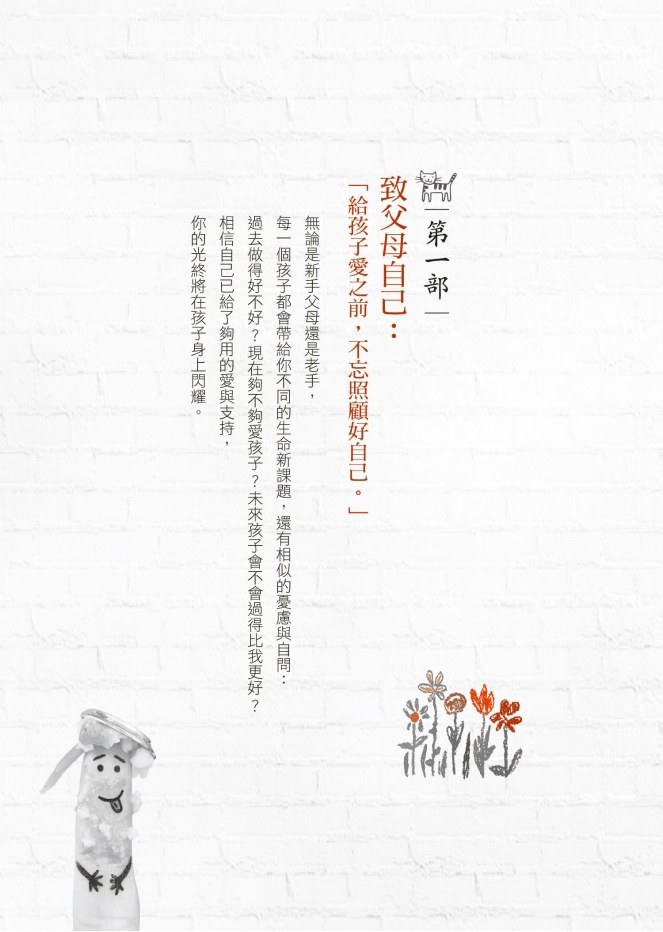 第一部
致父母自己：
「給孩子愛之前，不忘照顧好自己。」
無論是新手父母還是老手，
每一個孩子都會帶給你不同的生命新課題，還有相似的憂慮與自問：
過去做得好不好？現在夠不夠愛孩子？未來孩子會不會過得比我更好？
相信自己已給了夠用的愛與支持，
你的光終將在孩子身上閃耀。